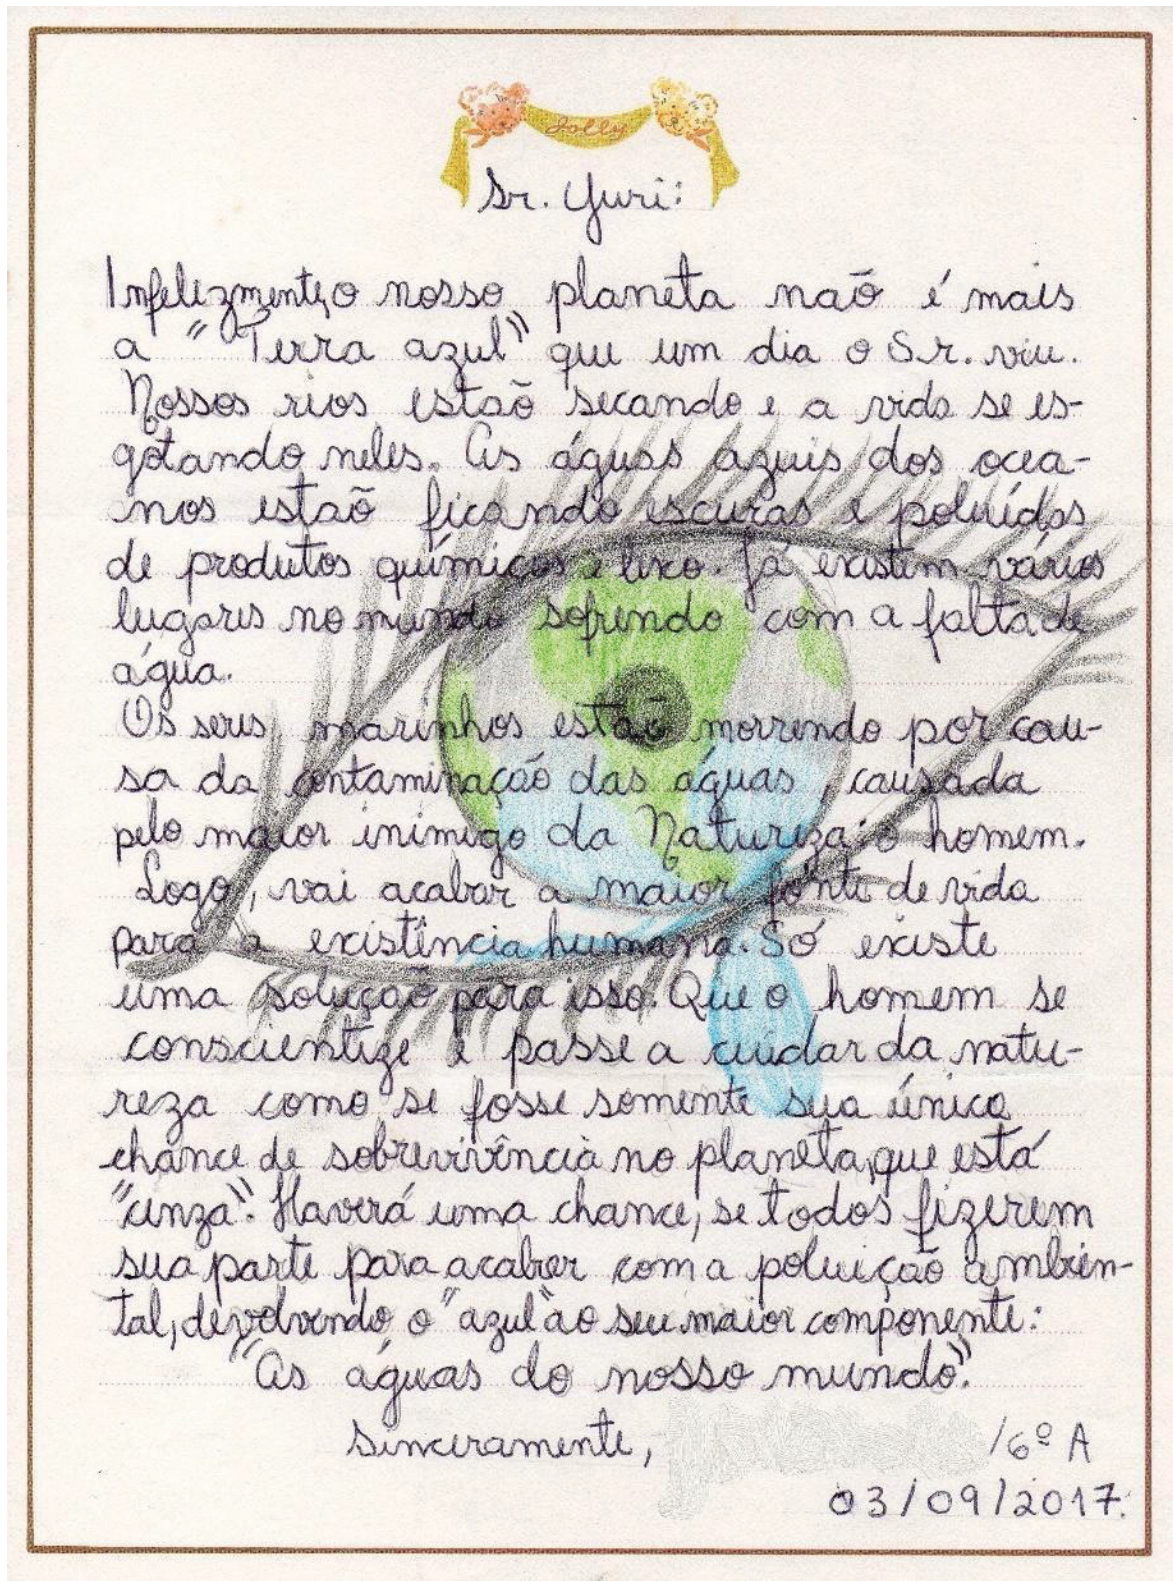 Jolly
Sr. Yuri:
Infelizmente, o nosso planeta não é mais
a "Terra azul" que um dia o Sr. viu.
Nossos rios estão secando e a vida se es-
gotando neles. As águas azuis dos ocea-
nos estão ficando escuras e poluídas
de produtos químicos e lixo. Já existem vários
lugares no mundo sofrendo com a falta de
água.
Os seres marinhos estão morrendo por cau-
sa da contaminação das águas, causada
pelo maior inimigo da Natureza: o homem.
Logo, vai acabar a maior fonte de vida
para a existência humana. Só existe
uma solução para isso. Que o homem se
conscientize e passe a cuidar da natu-
reza como se fosse somente sua única
chance de sobrevivência no planeta, que está
"cinza". Haverá uma chance, se todos fizerem
sua parte para acabar com a poluição ambien-
tal, devolvendo o "azul" ao seu maior componente:
"As águas do nosso mundo".
Sinceramente, /6º A
03/09/2017.